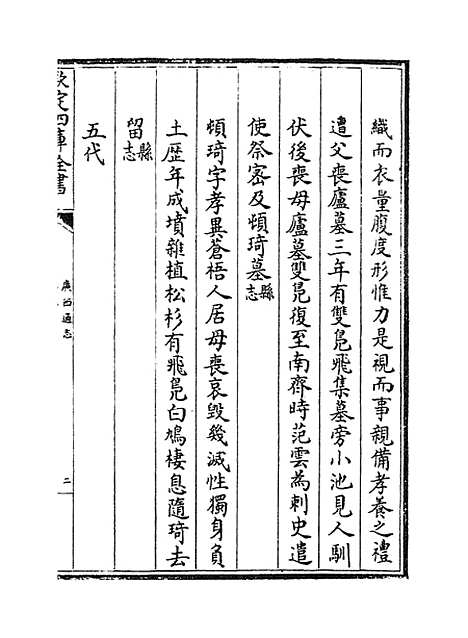 織而衣量腹度形惟力是視而事親備孝養之禮
遭父喪廬墓三年有雙鳬飛集墓旁小池見人馴
伏後喪母廬墓雙鳬復至南齊時范雲為刺史遣
使祭密及頓琦墓縣志
頓琦字孝異蒼梧人居母喪哀毀幾滅性獨身負
土歴年成墳雜植松杉有飛鳬白鳩棲息隨琦去
留縣志
五代
欽定四庫全書
廣西通志
二